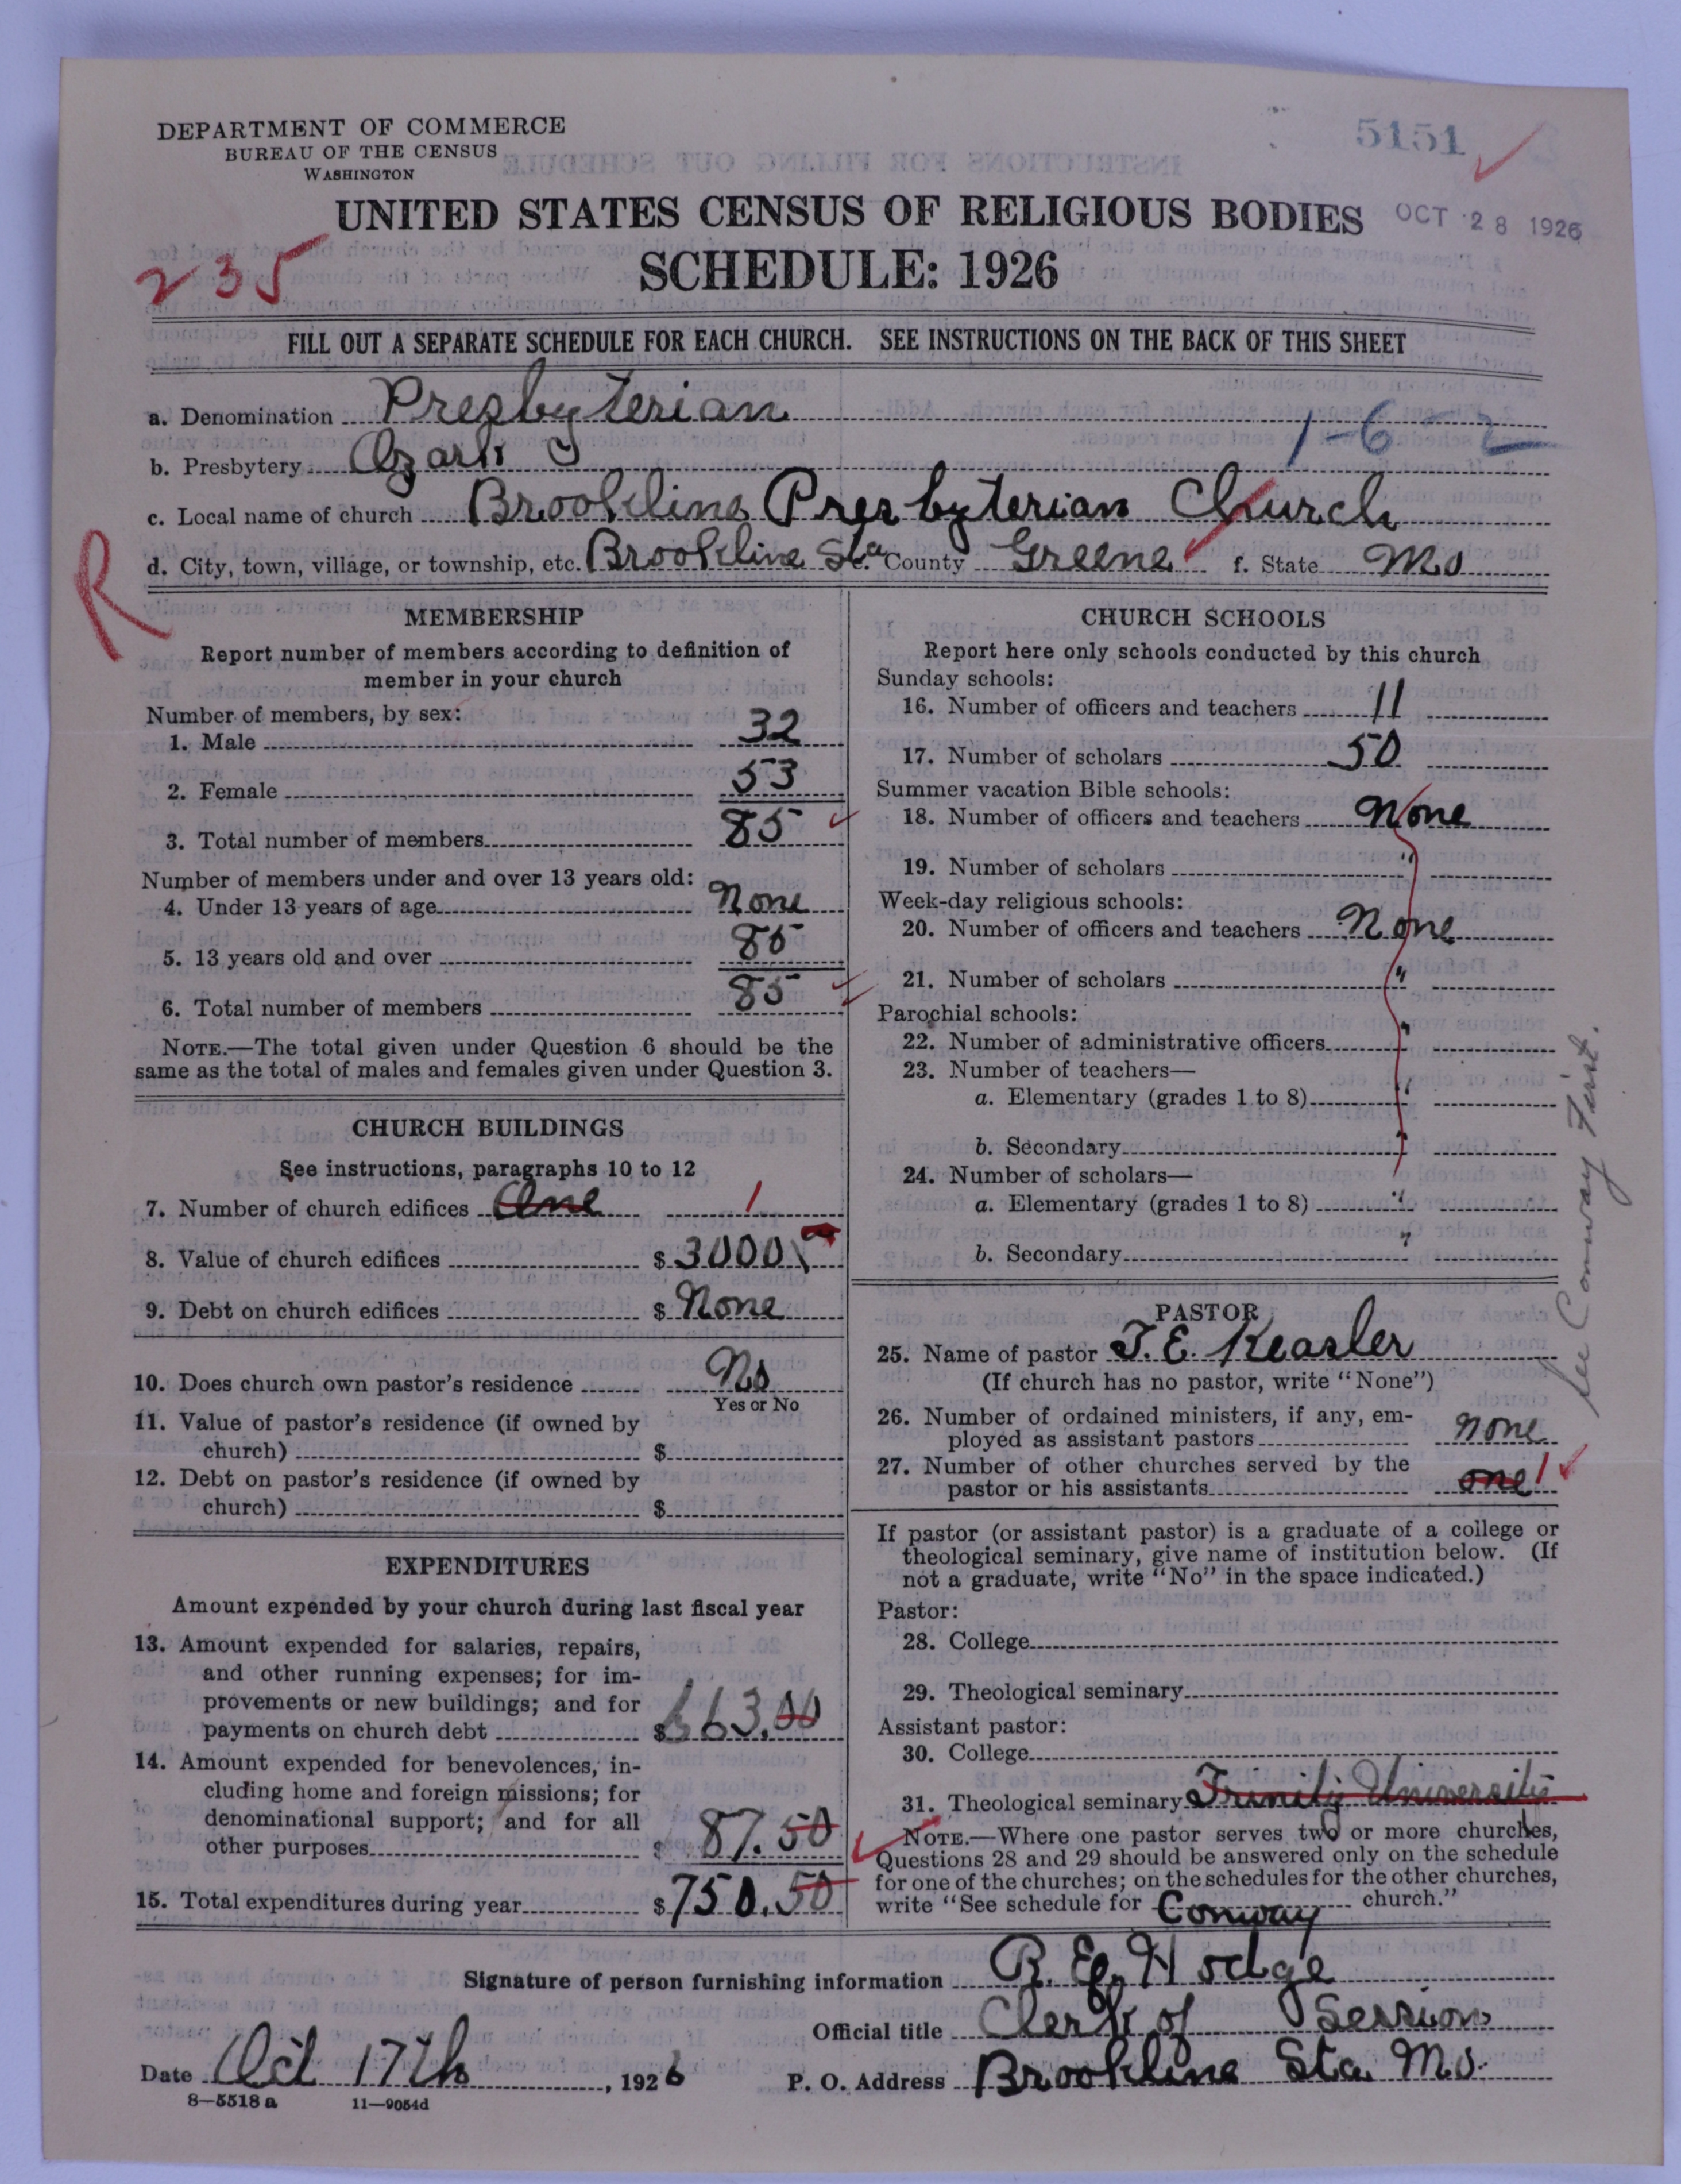 DEPARTMENT OF COMMERCE
BUREAU OF THE CENSUS
WASHINGTON
5151
UNITED STATES CENSUS OF RELIGIOUS BODIES
OCT 28 1926
SCHEDULE: 1926
235
FILL OUT A SEPARATE SCHEDULE FOR EACH CHURCH. SEE INSTRUCTIONS ON THE BACK OF THIS SHEET
a. Denomination Presbyterian
1-6-2
b. Presbytery Ozark
c. Local name of church Brookline Presbyterian Church
d. City, town, village, or township, etc. Brookline Sta e. County Greene f. State Mo
R
MEMBERSHIP
Report number of members according to definition of
member in your church
Number of members, by sex:
1. Male 32
2. Female 53
3. Total number of members 85
Number of members under and over 13 years old:
4. Under 13 years of age None
5. 13 years old and over 85
6. Total number of members 85
NOTE.—The total given under Question 6 should be the
same as the total of males and females given under Question 3.
CHURCH BUILDINGS
See instructions, paragraphs 10 to 12
7. Number of church edifices One 1
8. Value of church edifices $ 3000
9. Debt on church edifices $ None
10. Does church own pastor's residence No
Yes or No
11. Value of pastor's residence (if owned by
church) $
12. Debt on pastor's residence (if owned by
church) $
EXPENDITURES
Amount expended by your church during last fiscal year
13. Amount expended for salaries, repairs,
and other running expenses; for im-
provements or new buildings; and for
payments on church debt $ 663.00
14. Amount expended for benevolences, in-
cluding home and foreign missions; for
denominational support; and for all
other purposes $ 87.50
15. Total expenditures during year $ 750.50
CHURCH SCHOOLS
Report here only schools conducted by this church
Sunday schools:
16. Number of officers and teachers 11
17. Number of scholars 50
Summer vacation Bible schools:
18. Number of officers and teachers None
19. Number of scholars "
Week-day religious schools:
20. Number of officers and teachers None
21. Number of scholars "
Parochial schools:
22. Number of administrative officers "
23. Number of teachers—
a. Elementary (grades 1 to 8) "
b. Secondary "
24. Number of scholars—
a. Elementary (grades 1 to 8) "
b. Secondary "
PASTOR
25. Name of pastor T. E. Keasler
(If church has no pastor, write "None")
26. Number of ordained ministers, if any, em-
ployed as assistant pastors none
27. Number of other churches served by the
pastor or his assistants one 1
See Conway First.
If pastor (or assistant pastor) is a graduate of a college or
theological seminary, give name of institution below. (If
not a graduate, write "No" in the space indicated.)
Pastor:
28. College
29. Theological seminary
Assistant pastor:
30. College
31. Theological seminary Trinity University
NOTE.—Where one pastor serves two or more churches,
Questions 28 and 29 should be answered only on the schedule
for one of the churches; on the schedules for the other churches,
write "See schedule for Conway church."
Signature of person furnishing information R. E. Hodge
Official title Clerk of Session
Date Oct 17th, 1926
P. O. Address Brookline Sta. Mo.
8—5518 a 11—9054d